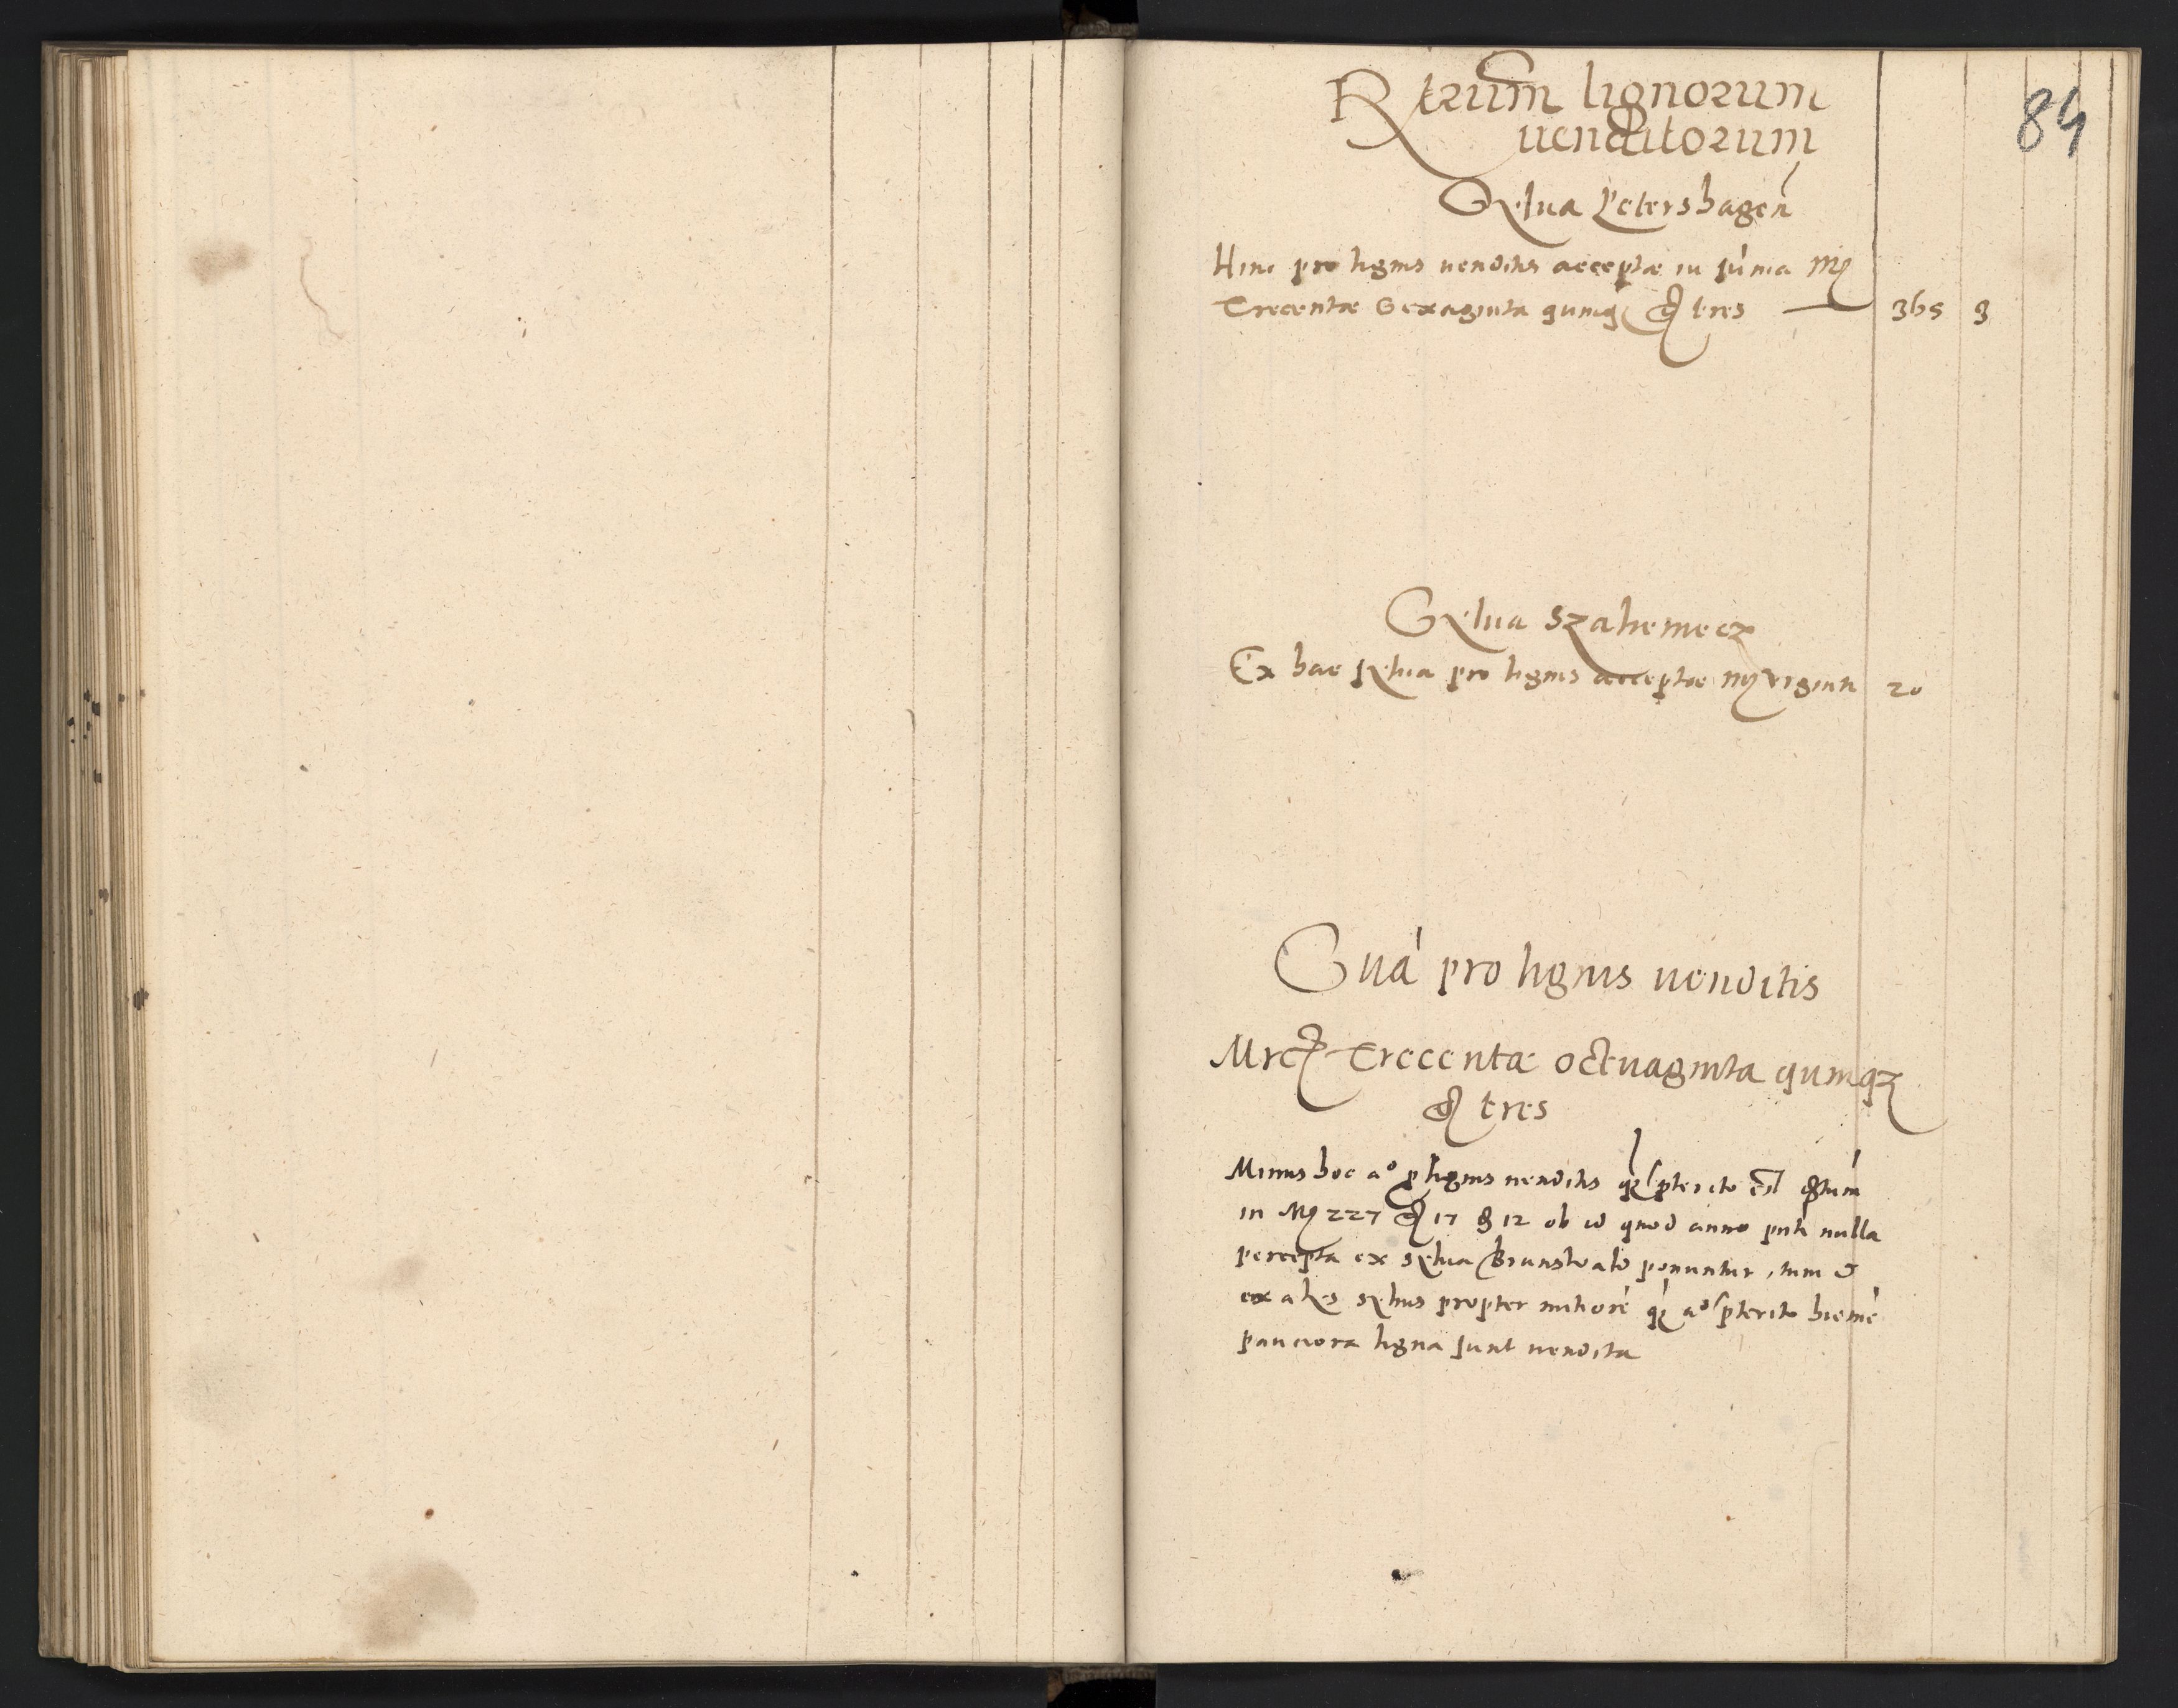 Rtrum lignorum
uenditorum
84
Sylua Petershagen
Hinc pro lignis uenditis acceptæ in suma Mr
Trecentæ Sexaginta quinq gr tres — 365 3
Sylua Szaliemecz
Ex hac sylua pro lignis acceptæ mr viginti 20
Sua pro lignis uenditis
Mrc Trecentæ octuaginta quinq
gr tres
Minus hoc a° p lignis uenditis q pterito est
in Mr 227 gr 17 12 ob id quod anno nulla
percepta ex sylua Brunswald ponuntur, tum &
ex alys syluis propter mitiore q a° pterito hieme
pauciora ligna sunt uendita